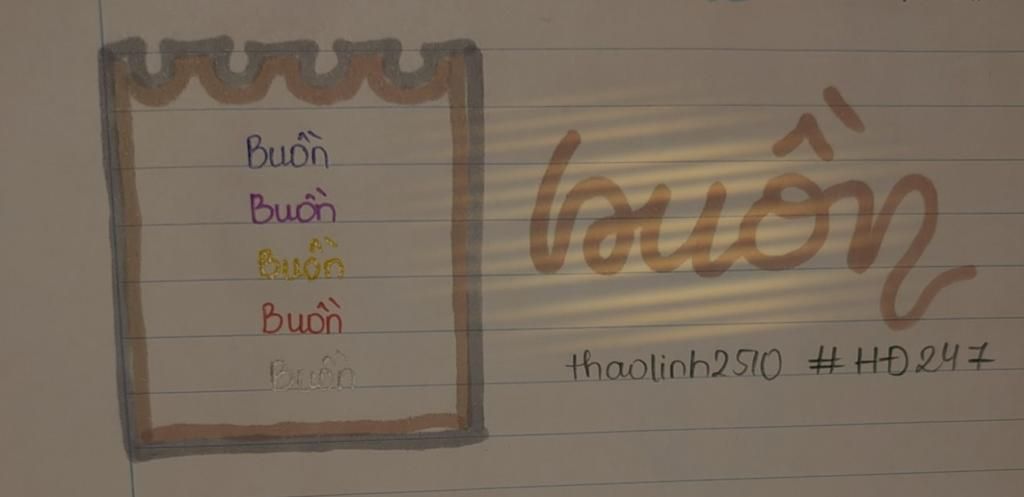 Buồn
Buồn
Buồn
Buồn
Buồn
buồn
thaolinh2510 #HĐ247